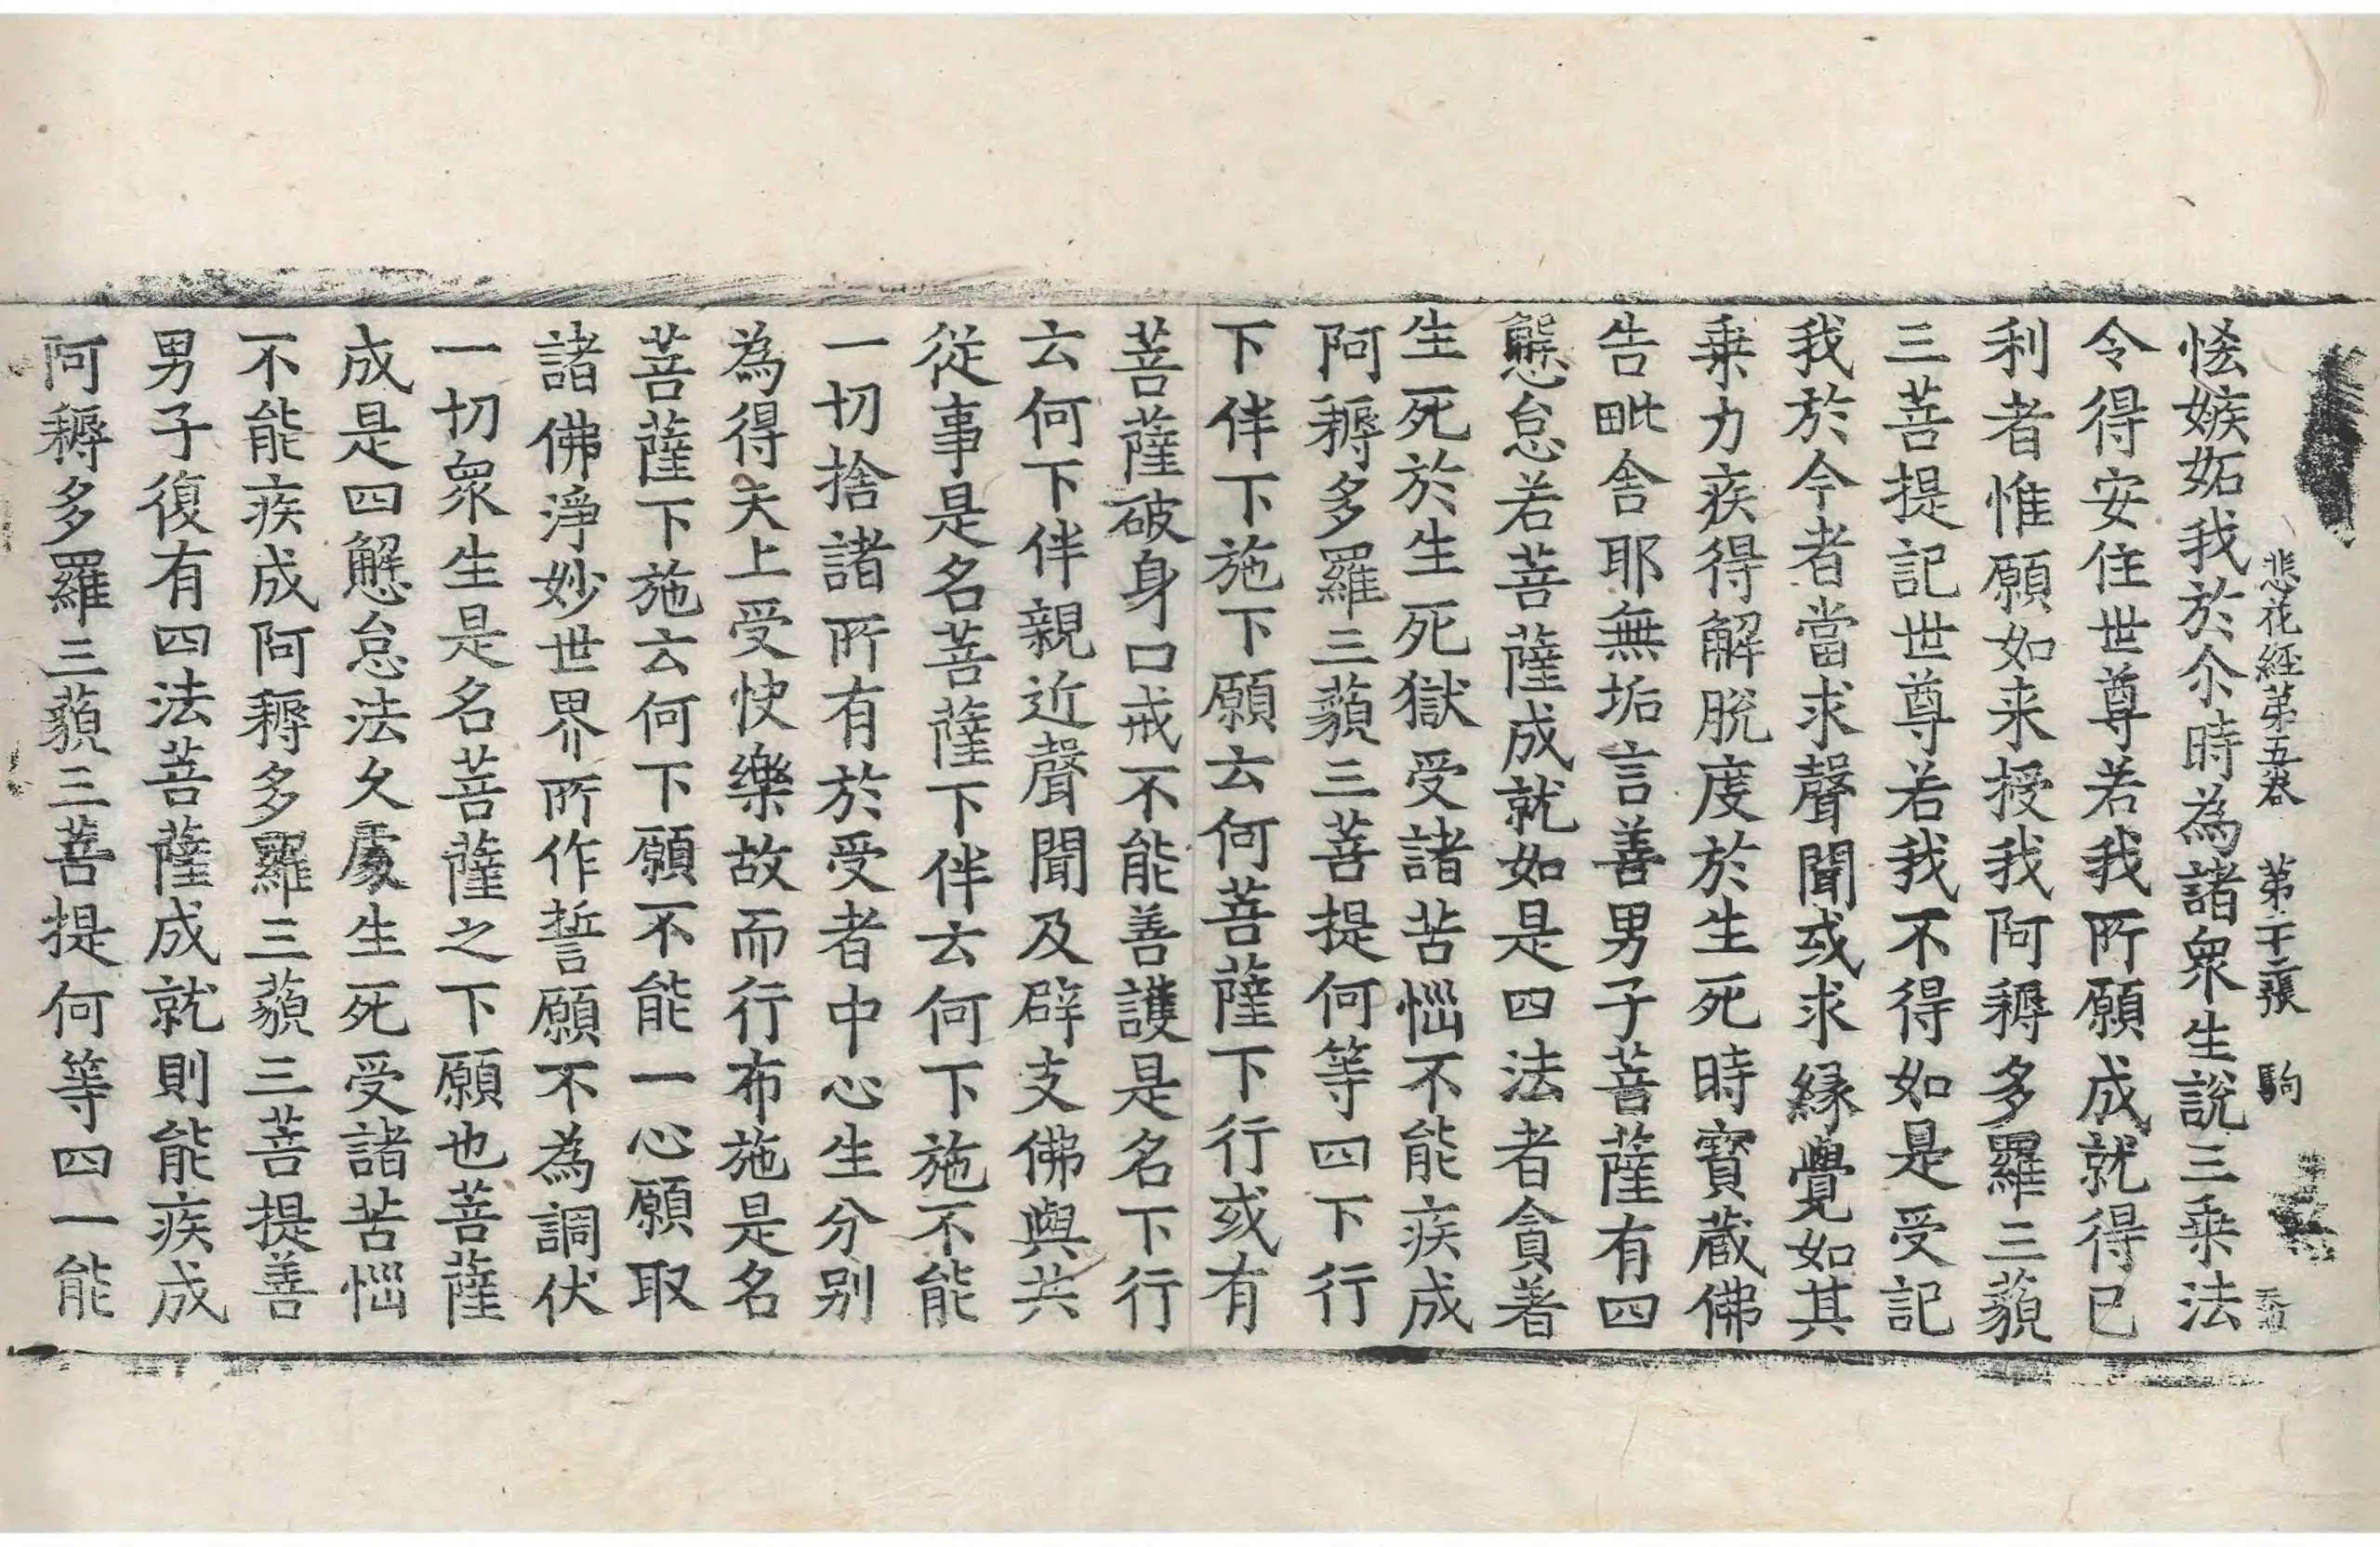 悲花經第五卷 第二十張 駒
恡嫉妬我於尒時為諸衆生說三乗法
令得安住世尊若我所願成就得已
利者惟願如来授我阿耨多羅三藐
三菩提記世尊若我不得如是受記
我於今者當求聲聞或求縁覺如其
乗力疾得解脫度於生死時寶蔵佛
告毗舎耶無垢言善男子菩薩有四
懈怠若菩薩成就如是四法者貪著
生死於生死獄受諸苦惱不能疾成
阿耨多羅三藐三菩提何等四下行
下伴下施下願云何菩薩下行或有
菩薩破身口戒不能善護是名下行
云何下伴親近聲聞及辟支佛與共
從事是名菩薩下伴云何下施不能
一切捨諸所有於受者中心生分别
為得天上受快樂故而行布施是名
菩薩下施云何下願不能一心願取
諸佛淨妙世界所作誓願不為調伏
一切衆生是名菩薩之下願也菩薩
成是四懈怠法久處生死受諸苦惱
不能疾成阿耨多羅三藐三菩提善
男子復有四法菩薩成就則能疾成
阿耨多羅三藐三菩提何等四一能